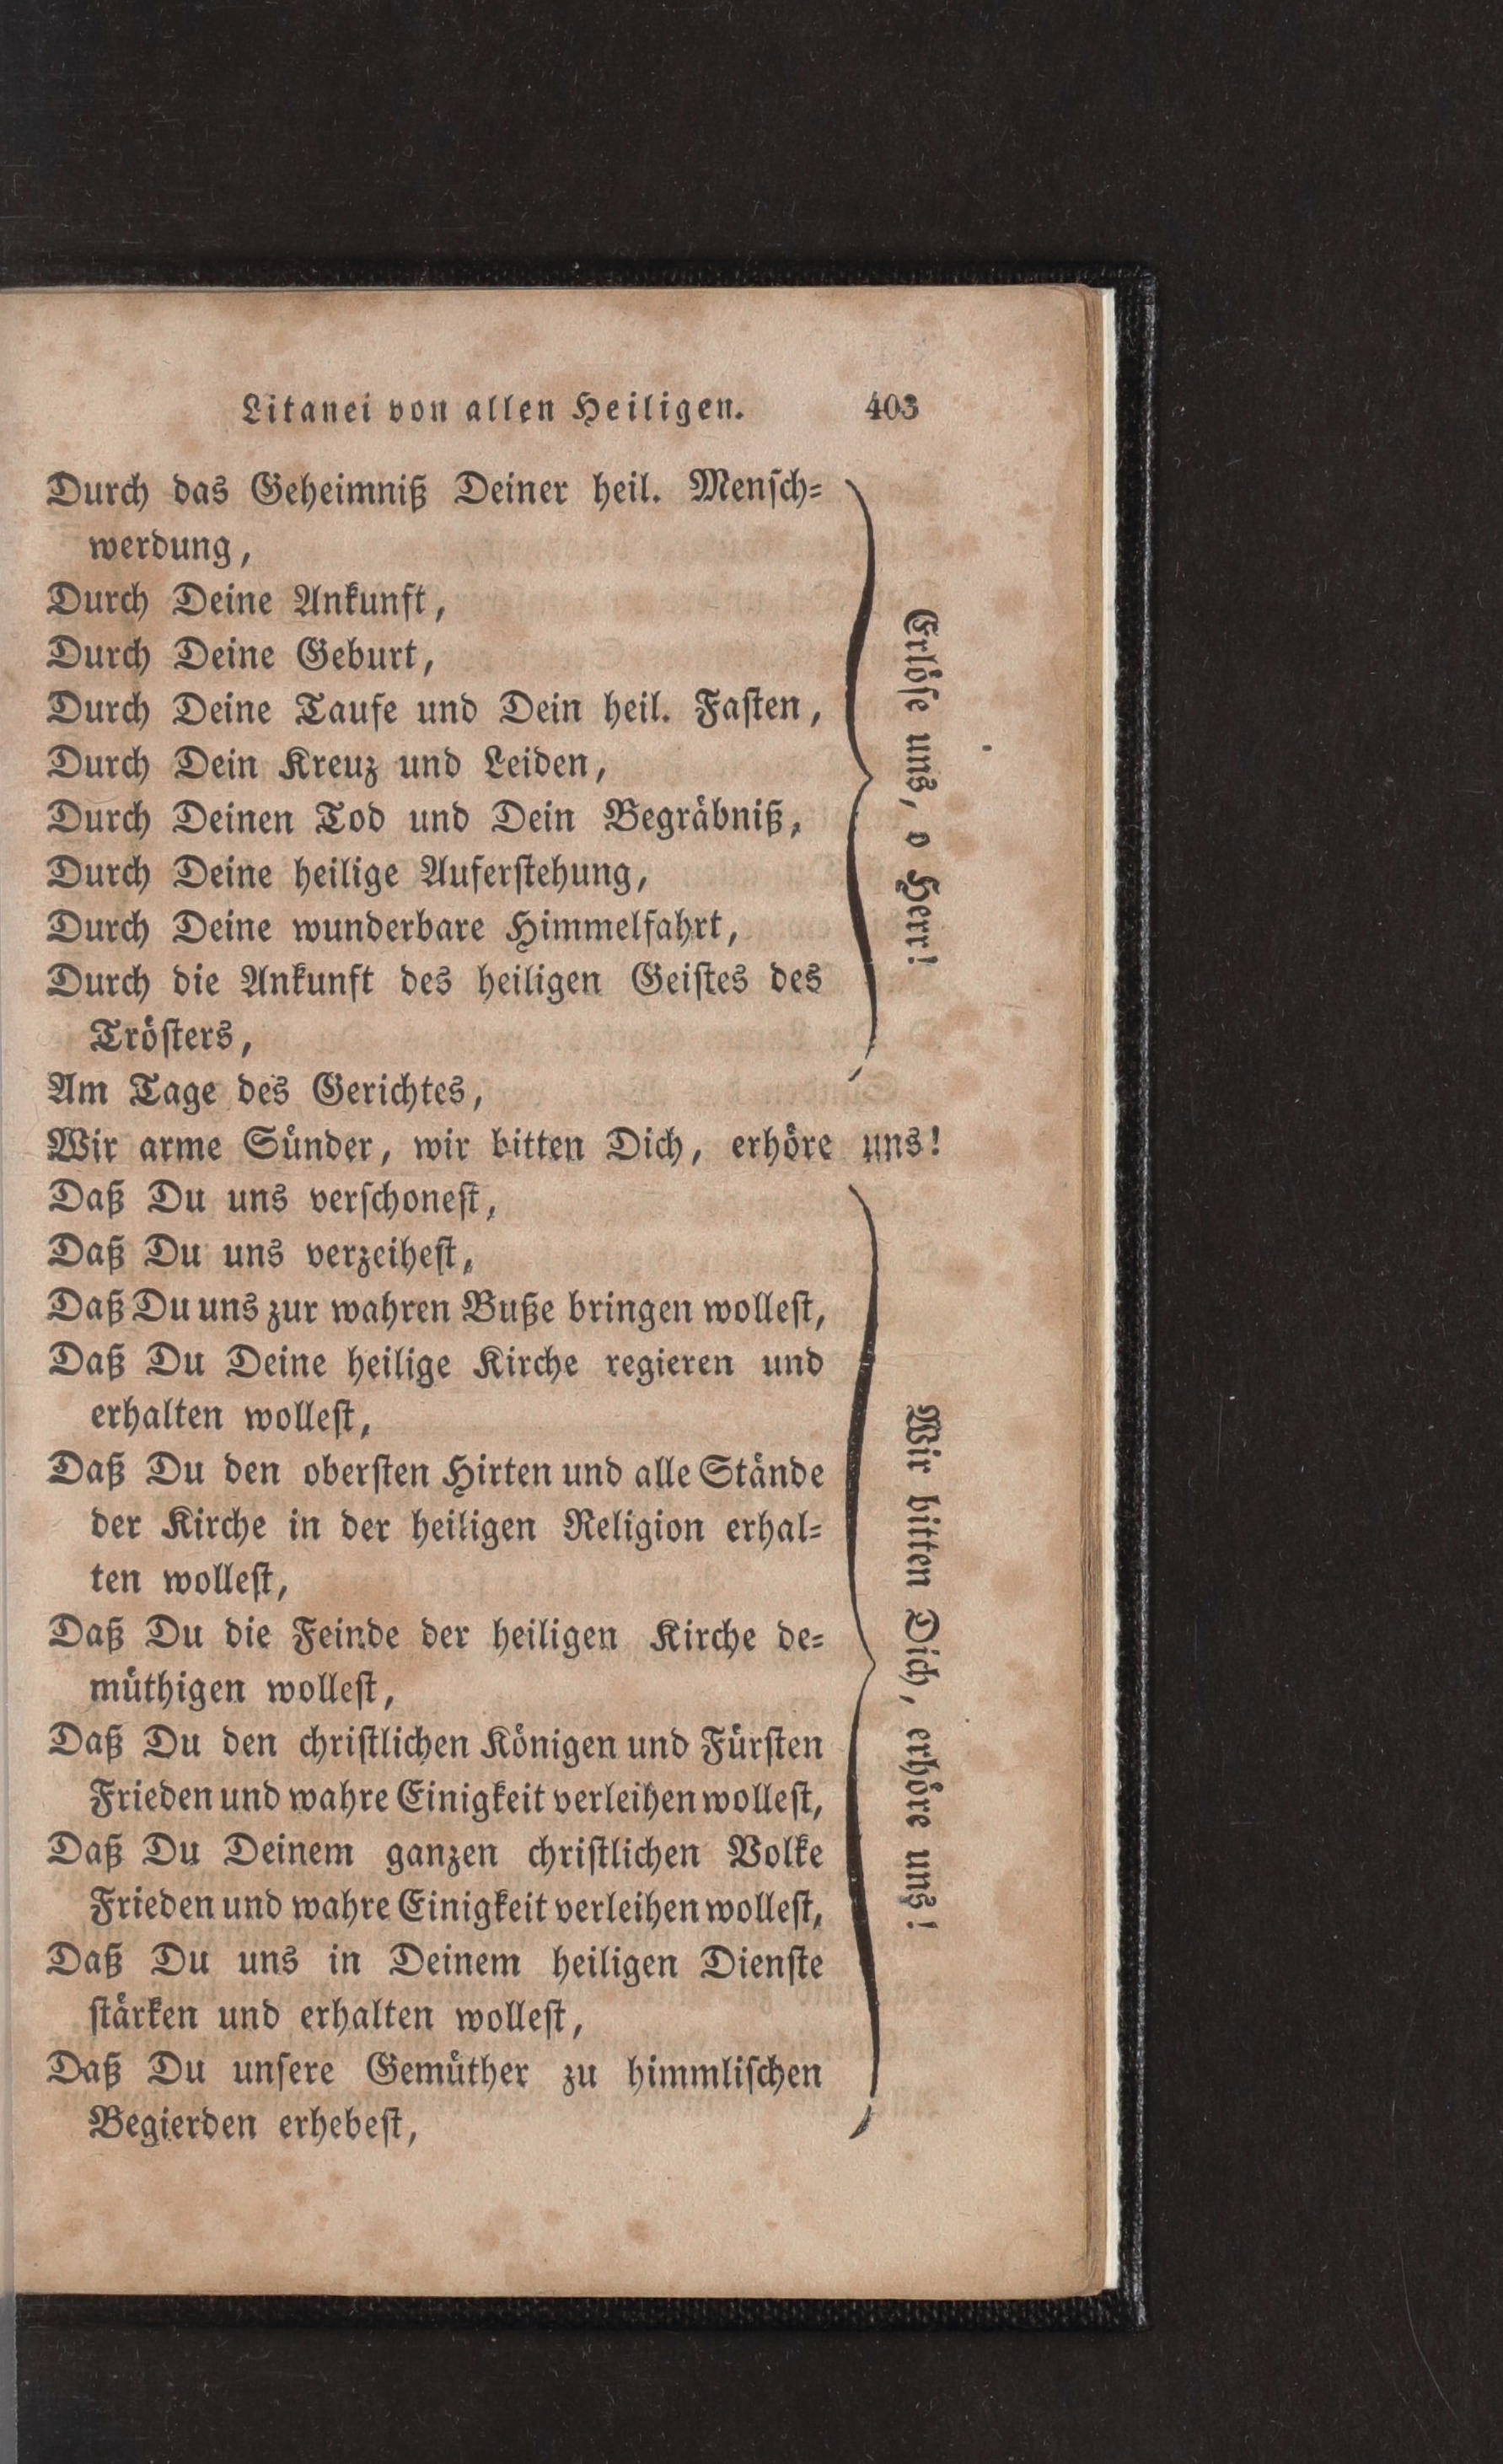 Litanei von allen Heiligen. 403
Durch das Geheimniß Deiner heil. Mensch=
werdung,
Durch Deine Ankunft,
Durch Deine Geburt,
Durch Deine Taufe und Dein heil. Fasten,
Durch Dein Kreuz und Leiden,
Durch Deinen Tod und Dein Begräbniß,
Durch Deine heilige Auferstehung,
Durch Deine wunderbare Himmelfahrt,
Durch die Ankunft des heiligen Geistes des
Trösters,
Am Tage des Gerichtes,
Erlöse uns, o Herr!
Wir arme Sünder, wir bitten Dich, erhöre uns!
Daß Du uns verschonest,
Daß Du uns verzeihest,
Daß Du uns zur wahren Buße bringen wollest,
Daß Du Deine heilige Kirche regieren und
erhalten wollest,
Daß Du den obersten Hirten und alle Stände
der Kirche in der heiligen Religion erhal=
ten wollest,
Daß Du die Feinde der heiligen Kirche de=
müthigen wollest,
Daß Du den christlichen Königen und Fürsten
Frieden und wahre Einigkeit verleihen wollest,
Daß Du Deinem ganzen christlichen Volke
Frieden und wahre Einigkeit verleihen wollest,
Daß Du uns in Deinem heiligen Dienste
stärken und erhalten wollest,
Daß Du unsere Gemüther zu himmlischen
Begierden erhebest,
Wir bitten Dich, erhöre uns!